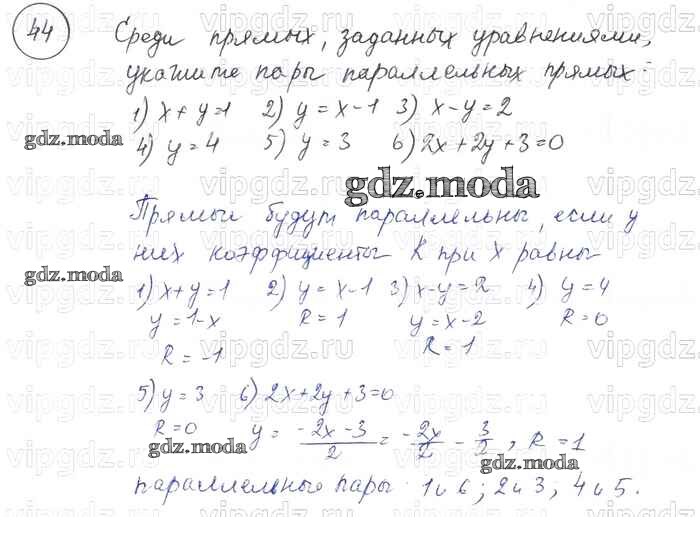 44 Среди прямых, заданных уравнениями,
укажите пары параллельных прямых:
1) x+y=1 2) y=x-1 3) x-y=2
gdz.moda
4) y=4 5) y=3 6) 2x+2y+3=0
gdz.moda
Прямые будут параллельны, если у
них коэффициенты k при x равны
gdz.moda
1) x+y=1 2) y=x-1 3) x-y=2 4) y=4
y=1-x k=1 y=x-2 k=0
k=-1 k=1
5) y=3 6) 2x+2y+3=0
k=0 y= (-2x-3)/2 = -2x/2 - 3/2, k=1
gdz.moda gdz.moda
параллельно пары 1 и 6; 2 и 3; 4 и 5.